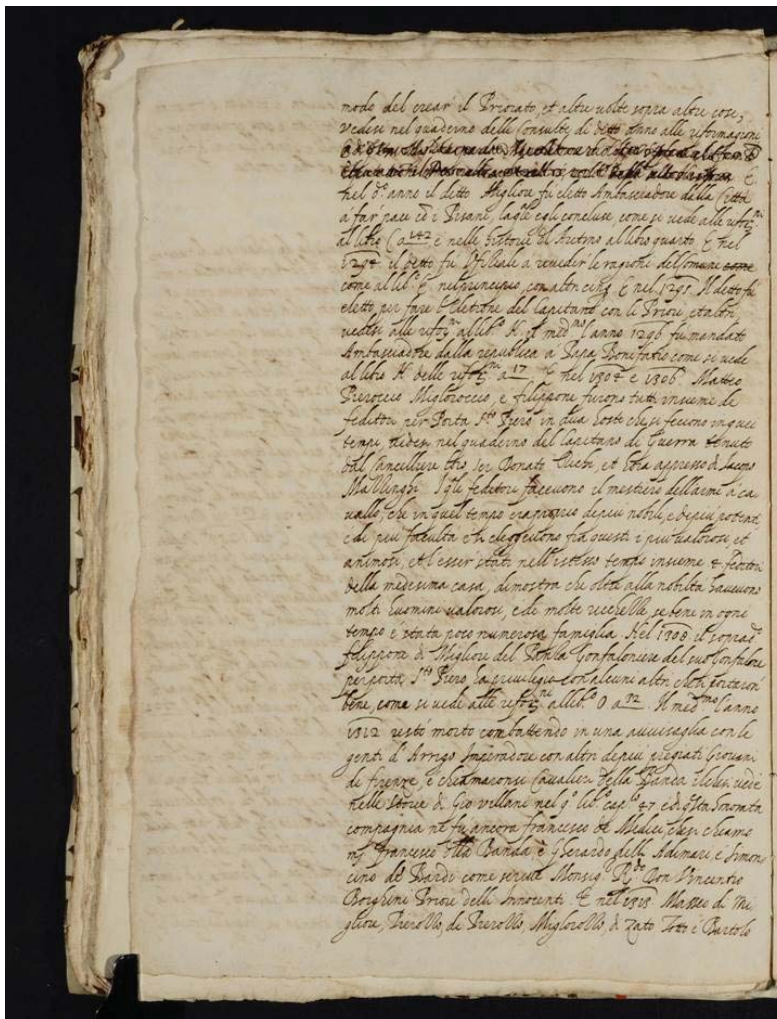 modo del crear il Priorato, et altre uolte sopra altre cose,
vedesi nel quaderno delle Consulte di detto anno alle reformagioni
E
nel d.º anno il detto Migliore fù eletto Ambasciadore dalla Città
à far pace cō i Pisani, laqle egli concluse, come si vede alle
al libro C a 142 e nelle historie del Aretino al libro quarto. E nel
1294. il detto fu Ofitiale a riueder le ragioni del Comune come
come al lib.º E nel principio, con altri cinq. E nel 1295. Il detto fù
eletto per fare l'eletione del Capitano con li Priori, et altri,
vedesi alle al lib.º H. Il med.mo l'anno 1296 fu mandato
Ambasciadore dalla republica a Papa Bonifatio come si vede
al libro H delle a 17. E nel 1304 e 1306 Matteo
Migloroccio, e filippone furono tutti insieme de
feditori per Porta S.to Piero in dua hoste che si feciono in quei
tempi, vedesi nel quaderno del Capitano di Guerra tenuto
dal Cancelliere Ser Donato et hora appresso di Jacopo
I qli feditori faceuono il mestiero dellarmi à ca
uallo, che in quel tempo era proprio de piu nobili, e de piu potenti,
e di piu faculta e si eleggeuono fra questi i piu ualorosi, et
animosi, et l'esser stati nell'istesso tempo insieme 4 feditori
della medesima casa, dimostra che oltre alla nobiltà haueuono
molti huomini ualorosi, e di molte ricchezze, se bene in ogni
tempo è stata poco numerosa famiglia. Nel 1308 il soprad.º
filippone di Migliore del Gonfaloniere del suo Gonfalone
per porta S.to Piero con alcuni altri
bene, come si uede alle al lib.º O a 92. Il med.mo l'anno
1312 restò morto combattendo in una auuisaglia con le
genti d'Arrigo Imperadore con altri de piu pregiati Giouani
di firenze, e chiamaronsi Caualieri della Banda il che si uede
nelle storie di Gio villani nel 9º lib.º cap.lo 47. e di qsta honorata
compagnia ne fu ancora francesco de Medici che si chiamò
mr francesco della Banda e Gherardo delli Adimari, e Simon
cino de Bardi come scriue Monsig.r R.do Don Vincentio
Borghini Priore delli Innocenti. E nel 1313 Masseo di Mi
gliore, Pierozzo, di Pierozzo, Miglorozzo, di Zato Totto e Bartolo